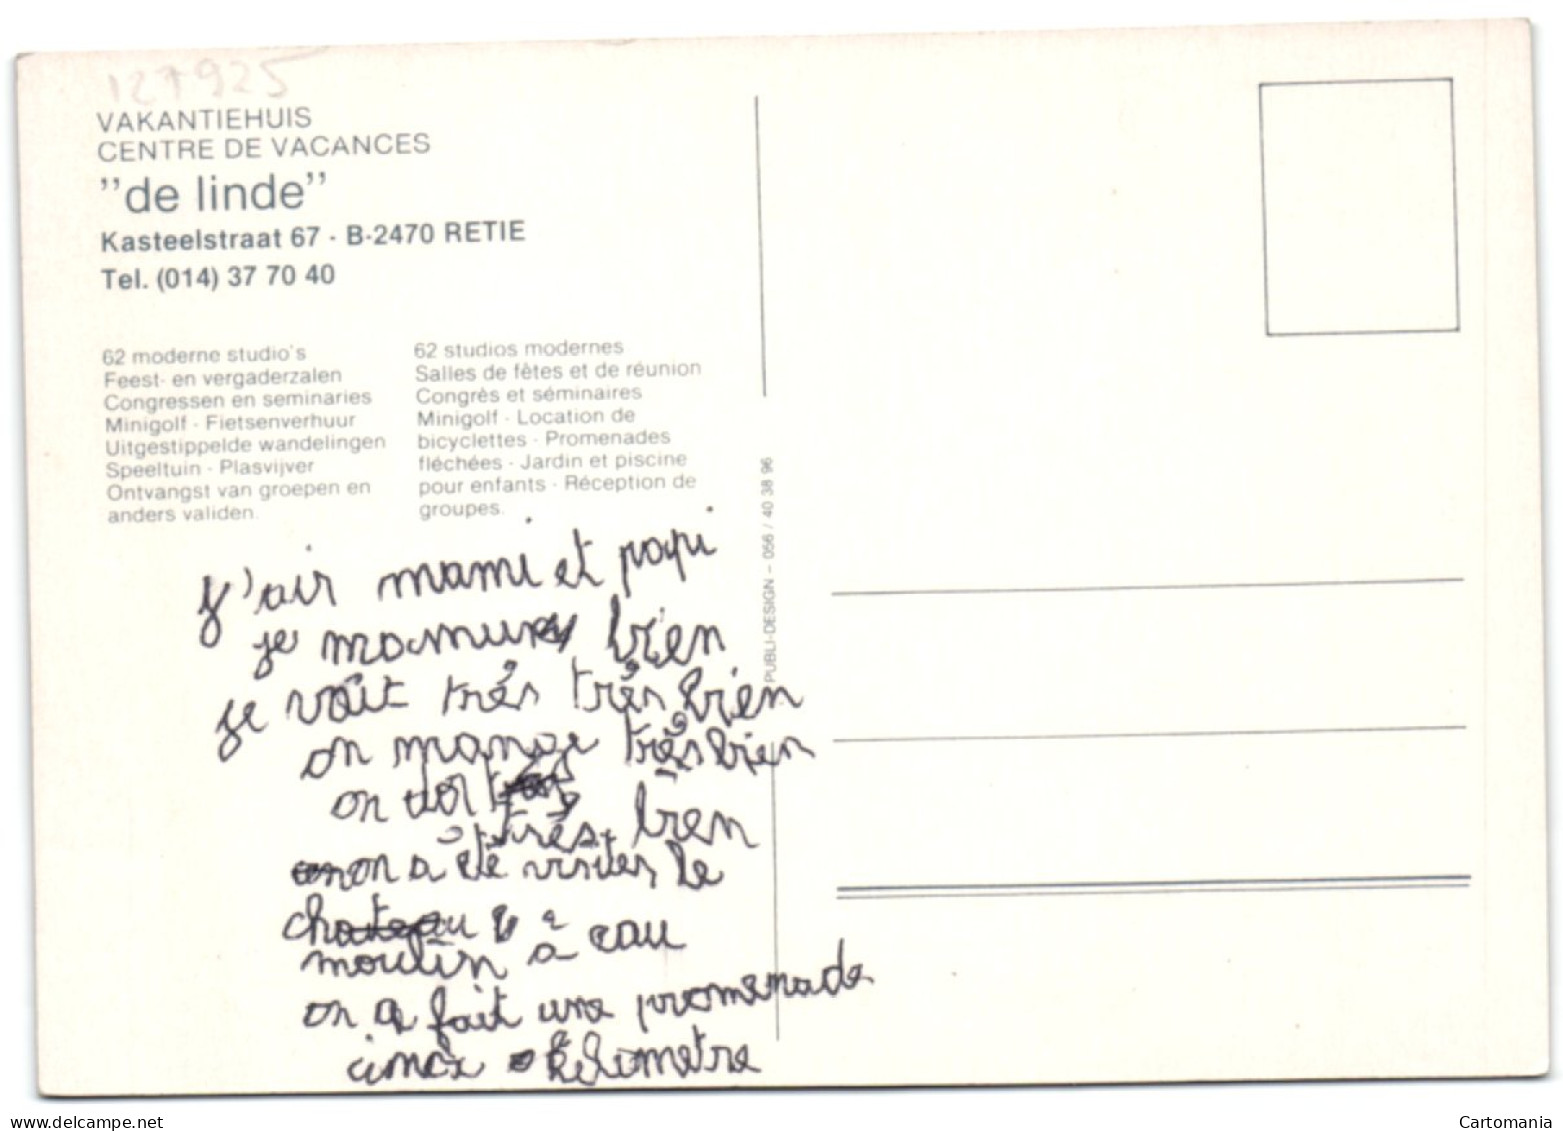 127925
VAKANTIEHUIS
CENTRE DE VACANCES
"de linde"
Kasteelstraat 67 - B-2470 RETIE
Tel. (014) 37 70 40
62 moderne studio's
Feest- en vergaderzalen
Congressen en seminaries
Minigolf - Fietsenverhuur
Uitgestippelde wandelingen
Speeltuin - Plasvijver
Ontvangst van groepen en
anders validen.
62 studios modernes
Salles de fêtes et de réunion
Congrès et séminaires
Minigolf - Location de
bicyclettes - Promenades
fléchées - Jardin et piscine
pour enfants - Réception de
groupes.
PUBLI-DESIGN – 056 / 40 38 96
mami et papi
je bien
je vait très très bien
on mange très bien
on dor
très bien
on a été visiter le
moulin à eau
on a fait une promenade
kilometre
delcampe.net
Cartomania